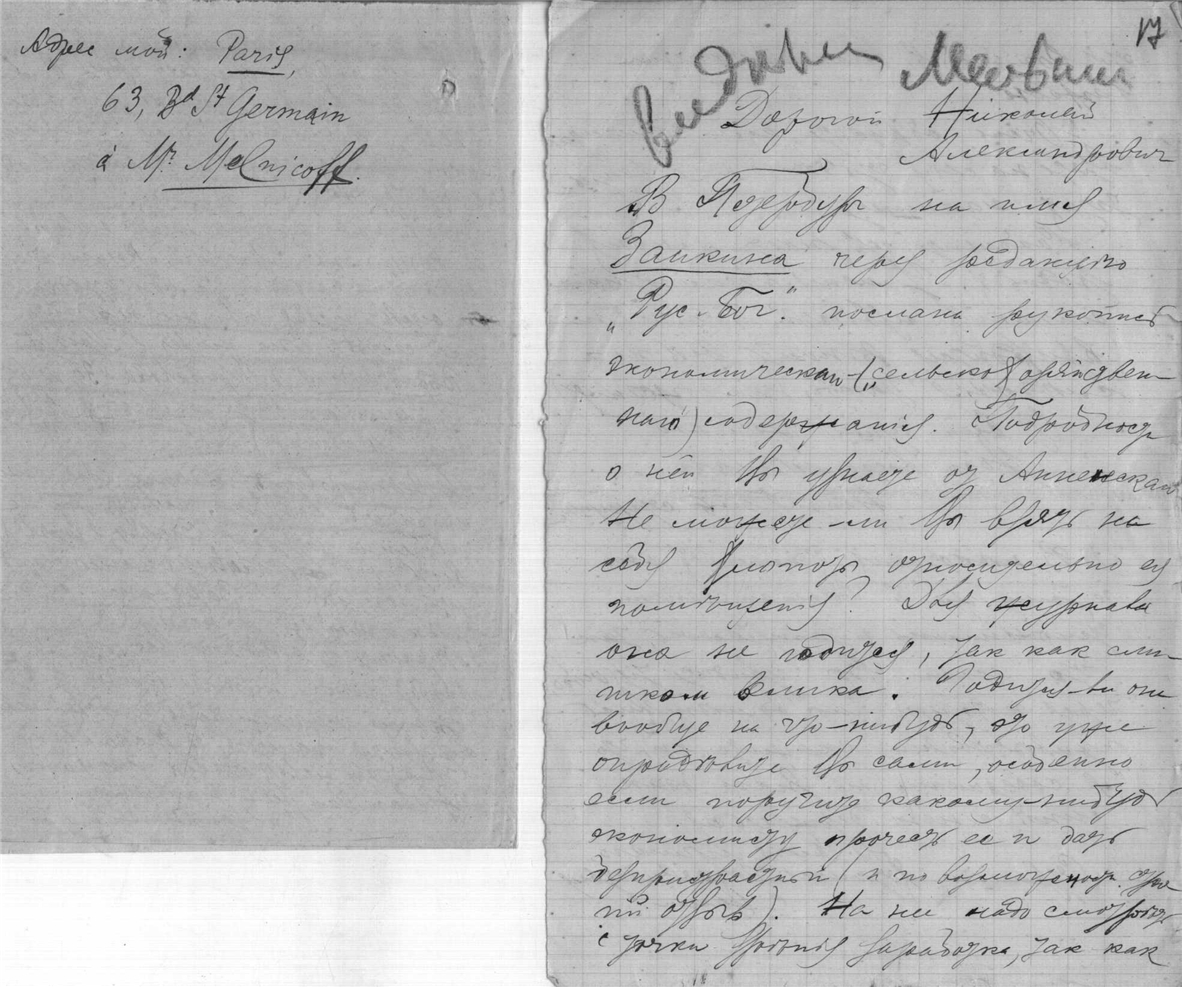 Адрес мой: Paris,
63, Bd St Germain
à Mr Melnicoff.
17
Дорогой Николай
Александрович
В Петербург на имя
Заикина через редакцию
„Рус. Бог." послана рукопись
экономическаго (сельскохозяйствен-
наго) содержанія. Подробности
о ней Вы узнаете от Анненскаго
Не можете-ли Вы взять на
себя хлопоты относительно ея
помѣщенія? Для журнала
она не годится, так как сли-
шком велика. Годится-ли она
вообще на что-нибудь, это уже
опредѣлите Вы сами, особенно
если поручите какому-нибудь
экономисту прочесть ее и дать
безпристрастный (и по возможност. стро-
гій отзыв). На нее надо смотрѣть
с точки зрѣнія заработка, так как